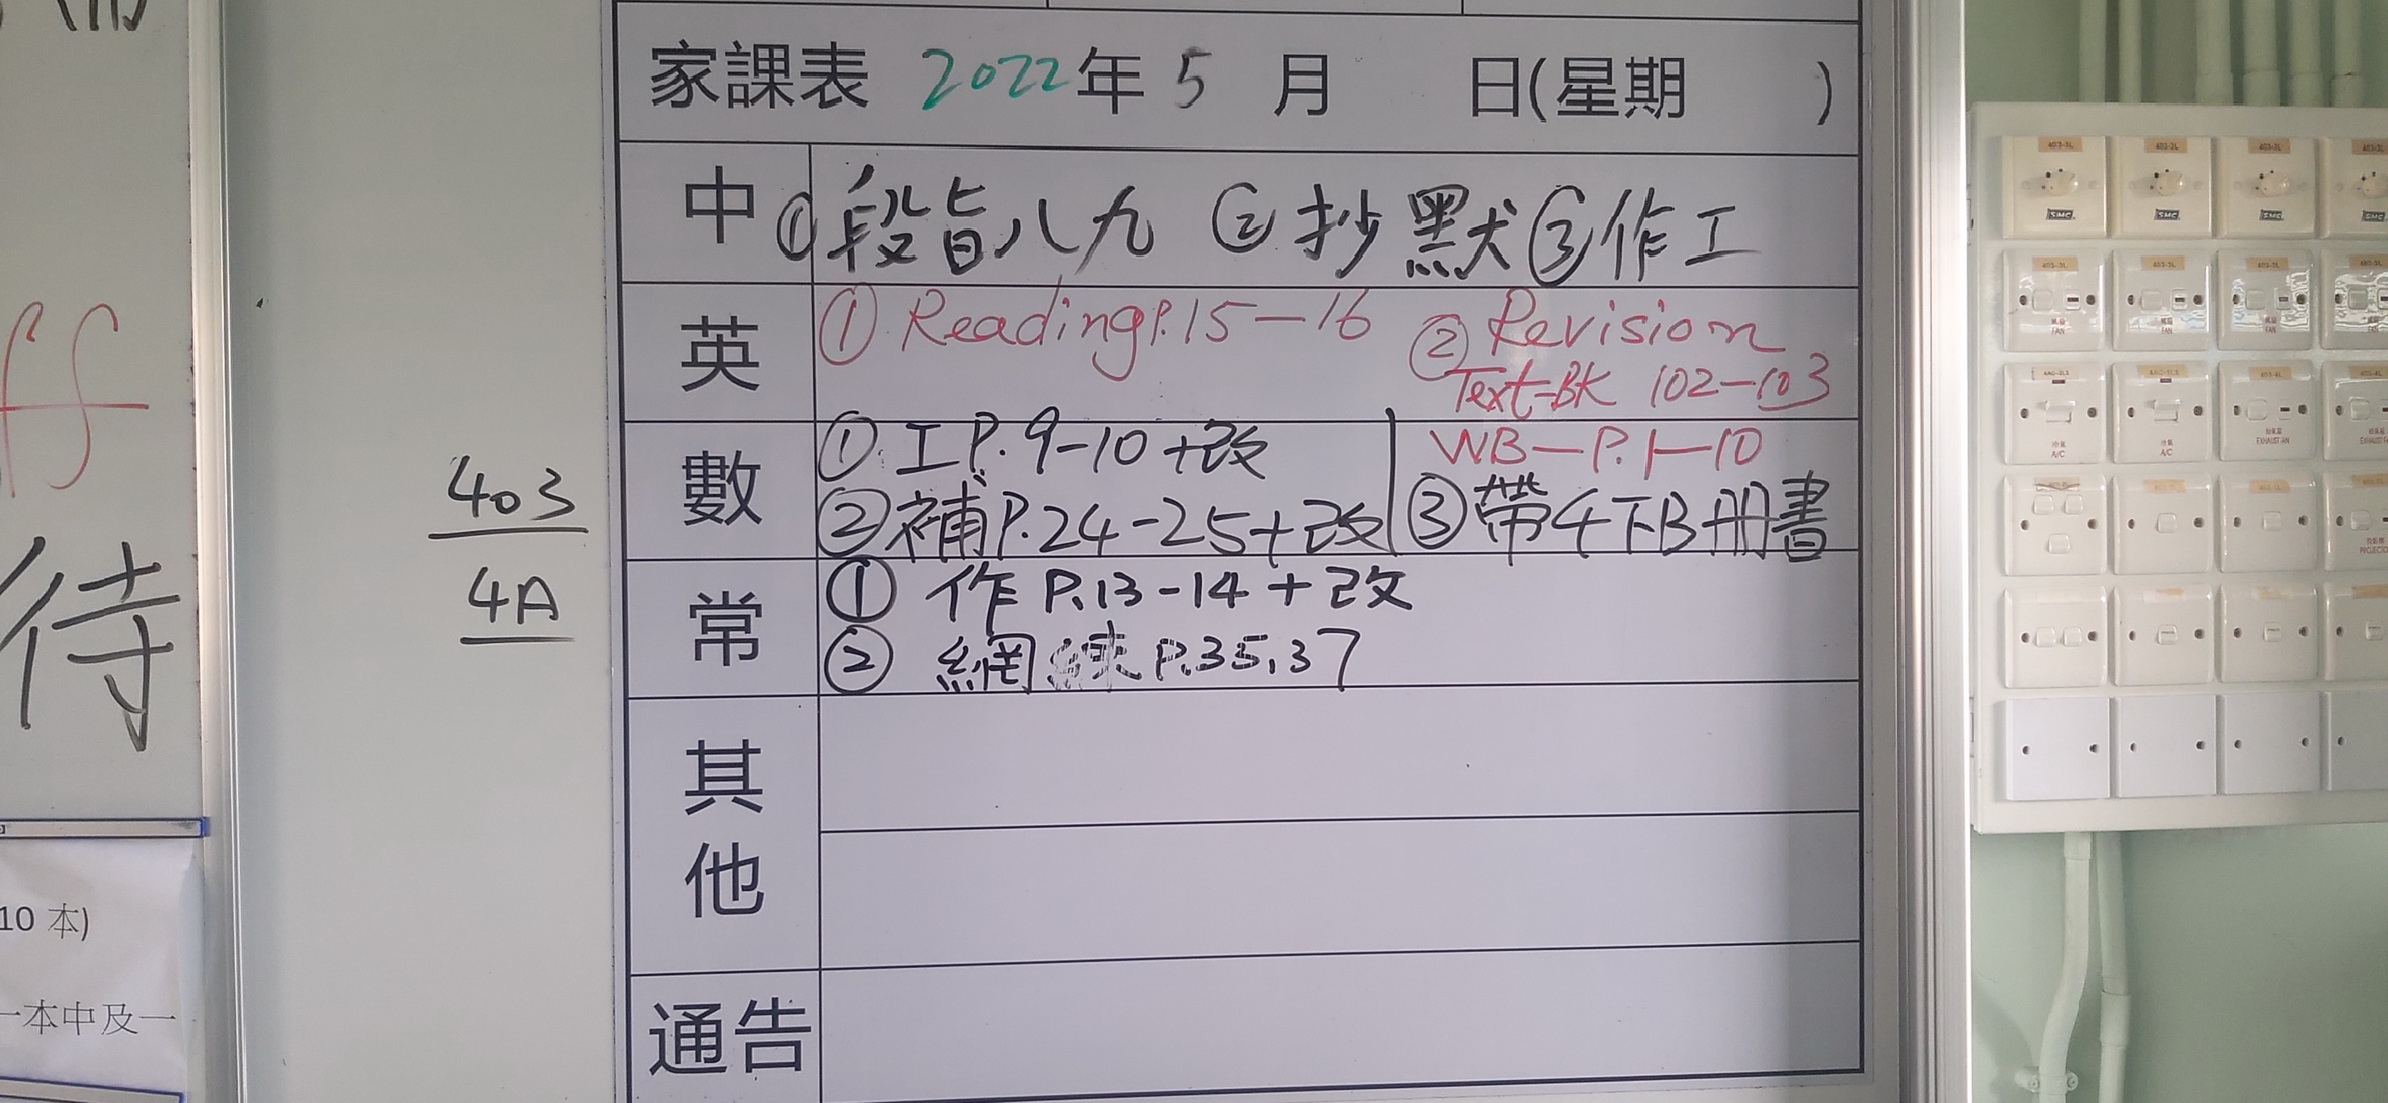 家課表 2022年 5 月 日(星期 )
中 ①段皆八九 ②抄默③作工
英 ① Reading P.15-16 ② Revision
Text-BK 102-103
WB-P.1-10
數 ① 工P.9-10+改
②補P.24-25+改 ③帶4下B册書
常 ① 作P.13-14+改
② 網練P.35,37
其他
通告
403
4A
ff
待
10 本)
一本中及一
SMC SMC SMC SMC
FAN FAN FAN FAN
A/C A/C EXHAUST FAN